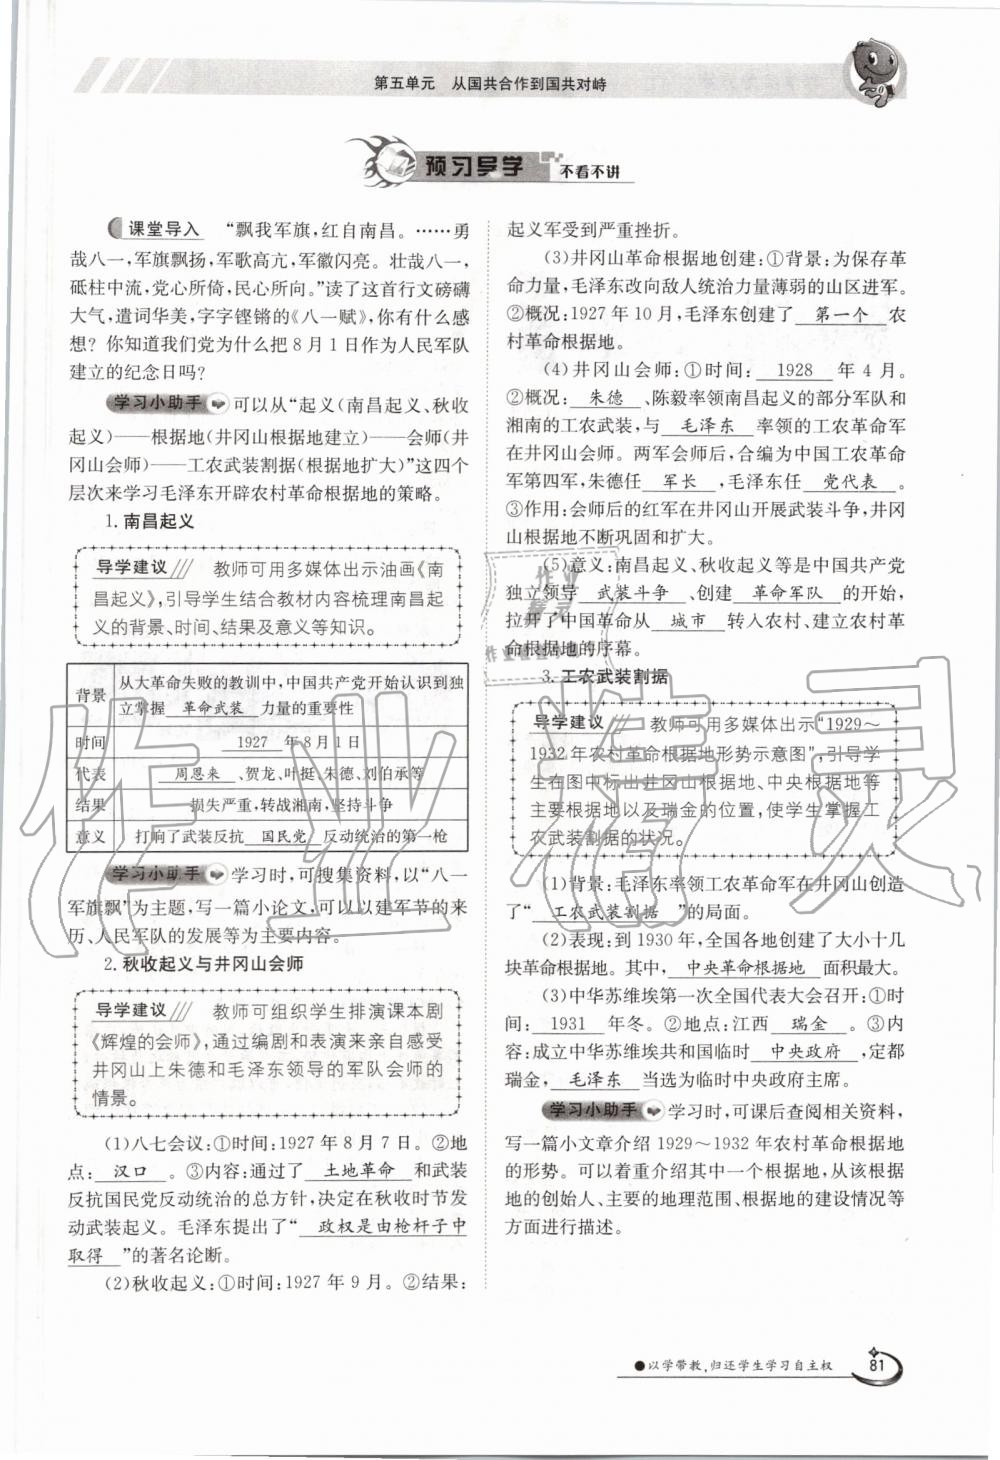 第五单元 从国共合作到国共对峙
预习导学 不看不讲
课堂导入 “飘我军旗,红自南昌。……勇
哉八一,军旗飘扬,军歌高亢,军徽闪亮。壮哉八一,
砥柱中流,党心所倚,民心所向。”读了这首行文磅礴
大气,遣词华美,字字铿锵的《八一赋》,你有什么感
想?你知道我们党为什么把8月1日作为人民军队
建立的纪念日吗?
学习小助手 可以从“起义(南昌起义、秋收
起义)——根据地(井冈山根据地建立)——会师(井
冈山会师)——工农武装割据(根据地扩大)”这四个
层次来学习毛泽东开辟农村革命根据地的策略。
1. 南昌起义
导学建议 教师可用多媒体出示油画《南
昌起义》,引导学生结合教材内容梳理南昌起
义的背景、时间、结果及意义等知识。
背景 从大革命失败的教训中,中国共产党开始认识到独
立掌握 革命武装 力量的重要性
时间 1927 年8月1日
代表 周恩来 、贺龙、叶挺、朱德、刘伯承等
结果 损失严重,转战湘南,坚持斗争
意义 打响了武装反抗 国民党 反动统治的第一枪
学习小助手 学习时,可搜集资料,以“八一
军旗飘”为主题,写一篇小论文,可以以建军节的来
历、人民军队的发展等为主要内容。
2. 秋收起义与井冈山会师
导学建议 教师可组织学生排演课本剧
《辉煌的会师》,通过编剧和表演来亲自感受
井冈山上朱德和毛泽东领导的军队会师的
情景。
(1)八七会议:①时间:1927年8月7日。②地
点: 汉口 。③内容:通过了 土地革命 和武装
反抗国民党反动统治的总方针,决定在秋收时节发
动武装起义。毛泽东提出了“ 政权是由枪杆子中
取得 ”的著名论断。
(2)秋收起义:①时间:1927年9月。②结果:
起义军受到严重挫折。
(3)井冈山革命根据地创建:①背景:为保存革
命力量,毛泽东改向敌人统治力量薄弱的山区进军。
②概况:1927年10月,毛泽东创建了 第一个 农
村革命根据地。
(4)井冈山会师:①时间: 1928 年4月。
②概况: 朱德 、陈毅率领南昌起义的部分军队和
湘南的工农武装,与 毛泽东 率领的工农革命军
在井冈山会师。两军会师后,合编为中国工农革命
军第四军,朱德任 军长 ,毛泽东任 党代表 。
③作用:会师后的红军在井冈山开展武装斗争,井冈
山根据地不断巩固和扩大。
(5)意义:南昌起义、秋收起义等是中国共产党
独立领导 武装斗争 、创建 革命军队 的开始,
拉开了中国革命从 城市 转入农村、建立农村革
命根据地的序幕。
3. 工农武装割据
导学建议 教师可用多媒体出示“1929~
1932年农村革命根据地形势示意图”,引导学
生在图中标出井冈山根据地、中央根据地等
主要根据地以及瑞金的位置,使学生掌握工
农武装割据的状况。
(1)背景:毛泽东率领工农革命军在井冈山创造
了“ 工农武装割据 ”的局面。
(2)表现:到1930年,全国各地创建了大小十几
块革命根据地。其中, 中央革命根据地 面积最大。
(3)中华苏维埃第一次全国代表大会召开:①时
间: 1931 年冬。②地点:江西 瑞金 。③内
容:成立中华苏维埃共和国临时 中央政府 ,定都
瑞金, 毛泽东 当选为临时中央政府主席。
学习小助手 学习时,可课后查阅相关资料,
写一篇小文章介绍1929~1932年农村革命根据地
的形势。可以着重介绍其中一个根据地,从该根据
地的创始人、主要的地理范围、根据地的建设情况等
方面进行描述。
●以学带教,归还学生学习自主权
81
作业精灵